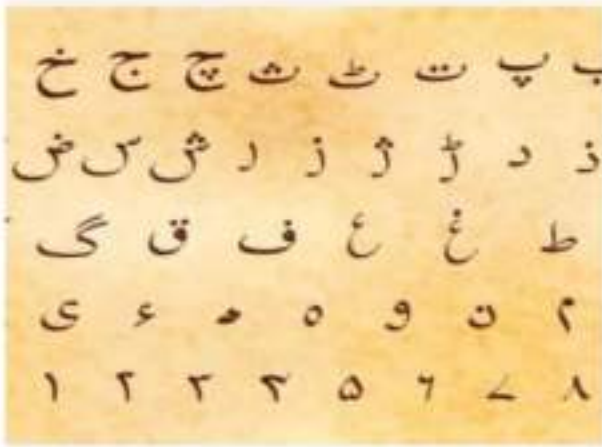 ب پ ت ٹ ث چ ج خ
ذ د ڑ ژ ز ر ش س ض
ط غ ع ف ق گ
م ن و ہ ء ی
۱ ۲ ۳ ۴ ۵ ۶ ۷ ۸